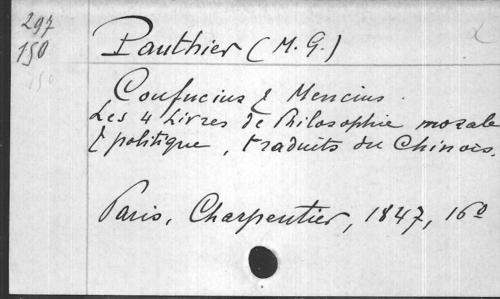 297
150
150
Pauthier (M. G.)
Confucius & Mencius.
Les 4 Livres de Philosophie morale
& politique, traduits du Chinois.
Paris, Charpentier, 1847, 16º